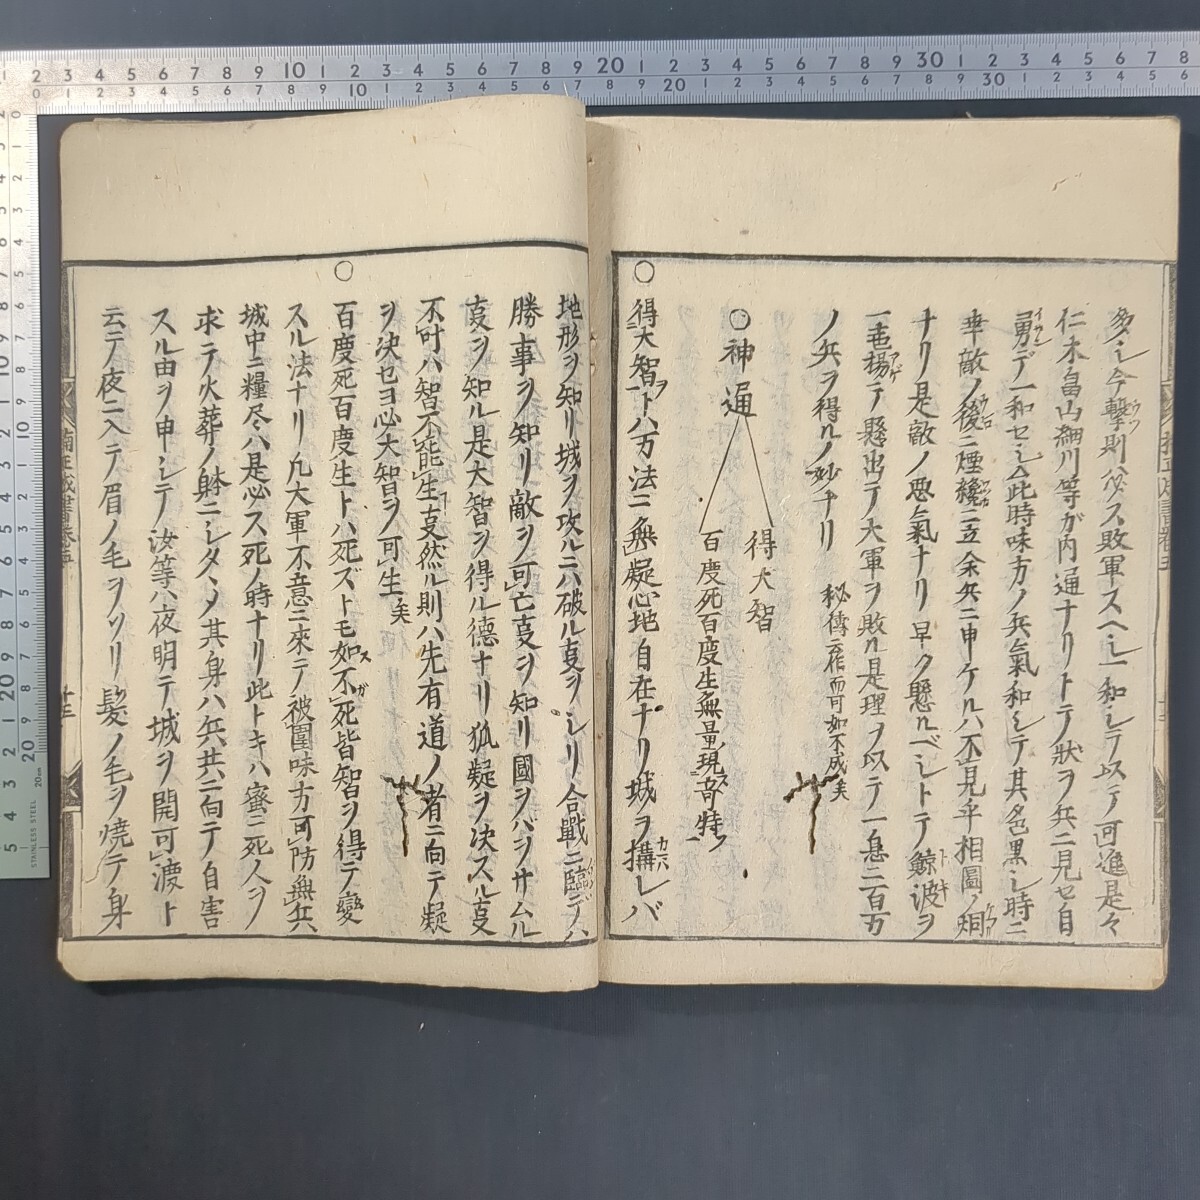 多シ今撃則必ス敗軍スヘシ一和シテ以テ可進是々
仁木畠山細川等が内通ナリトテ状ヲ兵ニ見セ自
勇デ一和セシム此時味方ノ兵氣和シテ其色黒シ時ニ
幸敵ノ後ニ煙纔ニ立余兵ニ申ケルハ不見乎相圖ノ烟
ナリ是敵ノ悪氣ナリ早ク懸ルベシトテ鯨波ヲ
一声揚テ懸出テ大軍ヲ敗ル是理ヲ以テ一息ニ百万
ノ兵ヲ得ルノ妙ナリ 秘傳云作而可如不成矣
〇神通
得大智
百度死百度生無量現奇特
〇得大智トハ万法ニ無疑心地自在ナリ城ヲ搆レバ
地形ヲ知リ城ヲ攻ルニハ破ル叓ヲシリ合戰ニ臨デハ
勝事ヲ知リ敵ヲ可亡叓ヲ知リ國ヲバヲサムル
叓ヲ知ル是大智ヲ得ル德ナリ狐疑ヲ决スル叓
不叶ハ智不能生叓然ル則ハ先有道ノ者ニ向テ疑
ヲ决セヨ必大智ヲ可生矣
〇百度死百度生トハ死ズトモ如不死皆智ヲ得テ變
スル法ナリ凡大軍不意ニ來テ被圍味方可防無兵
城中ニ糧尽ハ是必ス死ノ時ナリ此トキハ蜜ニ死人ヲ
求テ火葬ノ躰ニシタヽメ其身ハ兵共ニ向テ自害
スル由ヲ申シテ汝等ハ夜明テ城ヲ開可渡ト
云テ夜ニ入テ眉ノ毛ヲソリ髪ノ毛ヲ焼テ身
十三